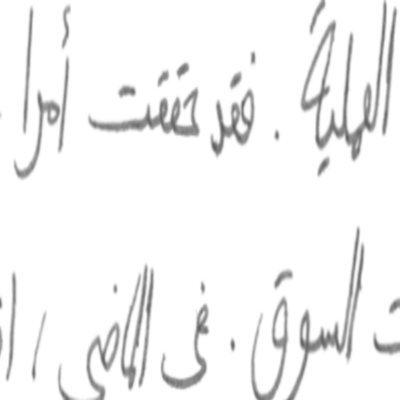 العملية . فقد حققت أمرا
السوق . فى الماضى ،